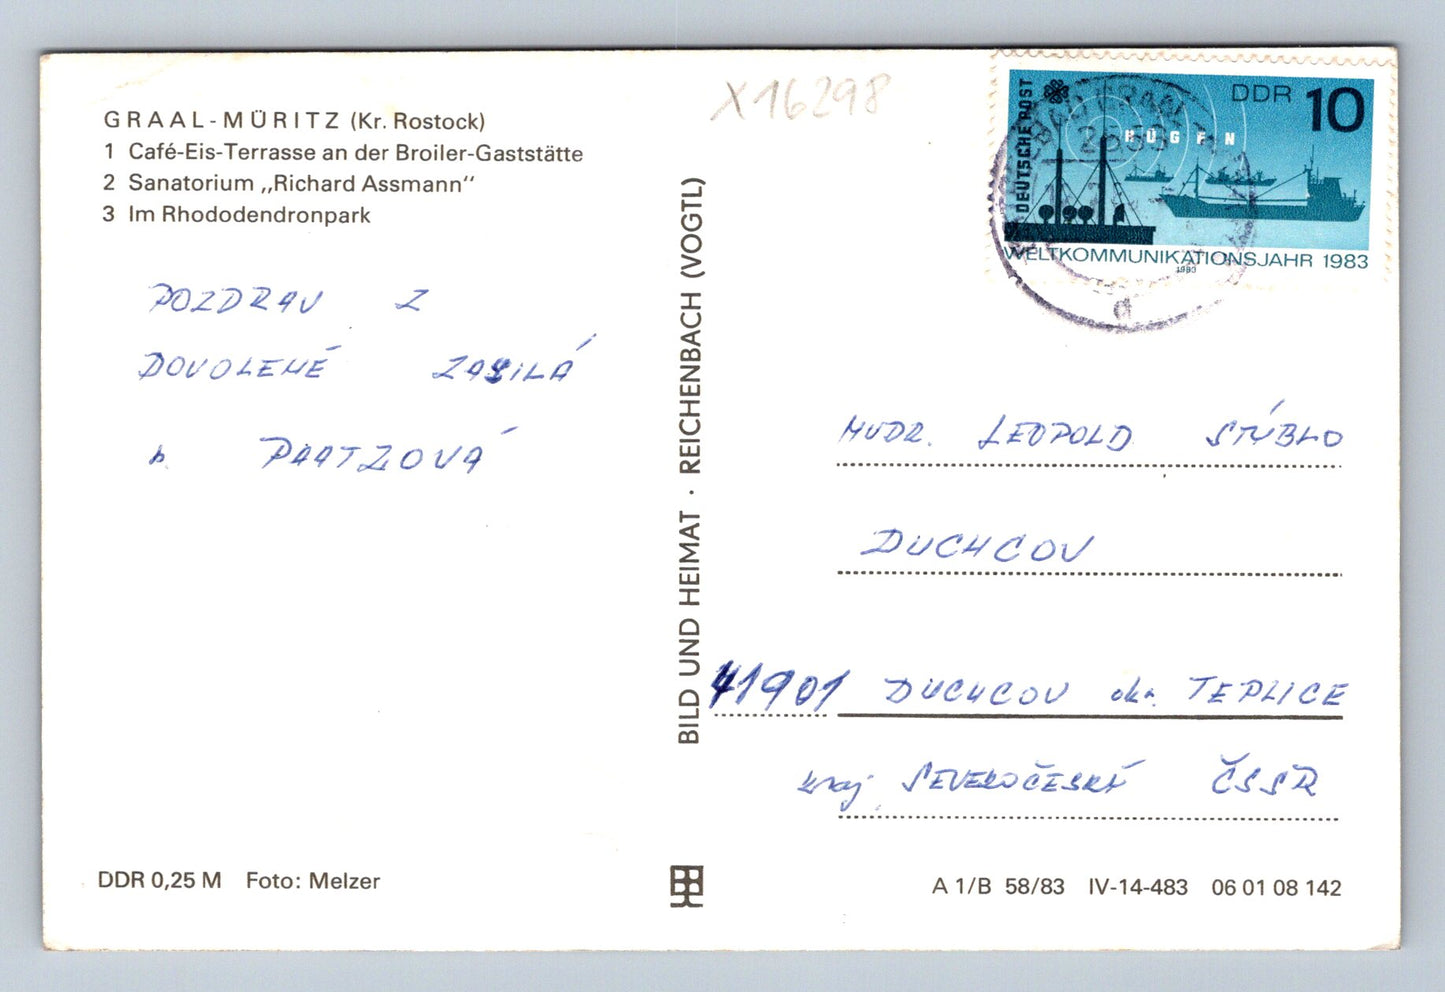 GRAAL-MÜRITZ (Kr. Rostock)
1 Café-Eis-Terrasse an der Broiler-Gaststätte
2 Sanatorium „Richard Assmann"
3 Im Rhododendronpark
POZDRAV Z
DOVOLENÉ ZASÍLÁ
PAATZOVÁ
DDR 0,25 M Foto: Melzer
BILD UND HEIMAT · REICHENBACH (VOGTL)
X16298
DEUTSCHE POST
DDR 10
RÜGEN
WELTKOMMUNIKATIONSJAHR 1983
1983
MUDR. LEOPOLD STÝBLO
DUCHCOV
41901 DUCHCOV okr. TEPLICE
kraj SEVEROČESKÝ ČSSR
A 1/B 58/83 IV-14-483 06 01 08 142